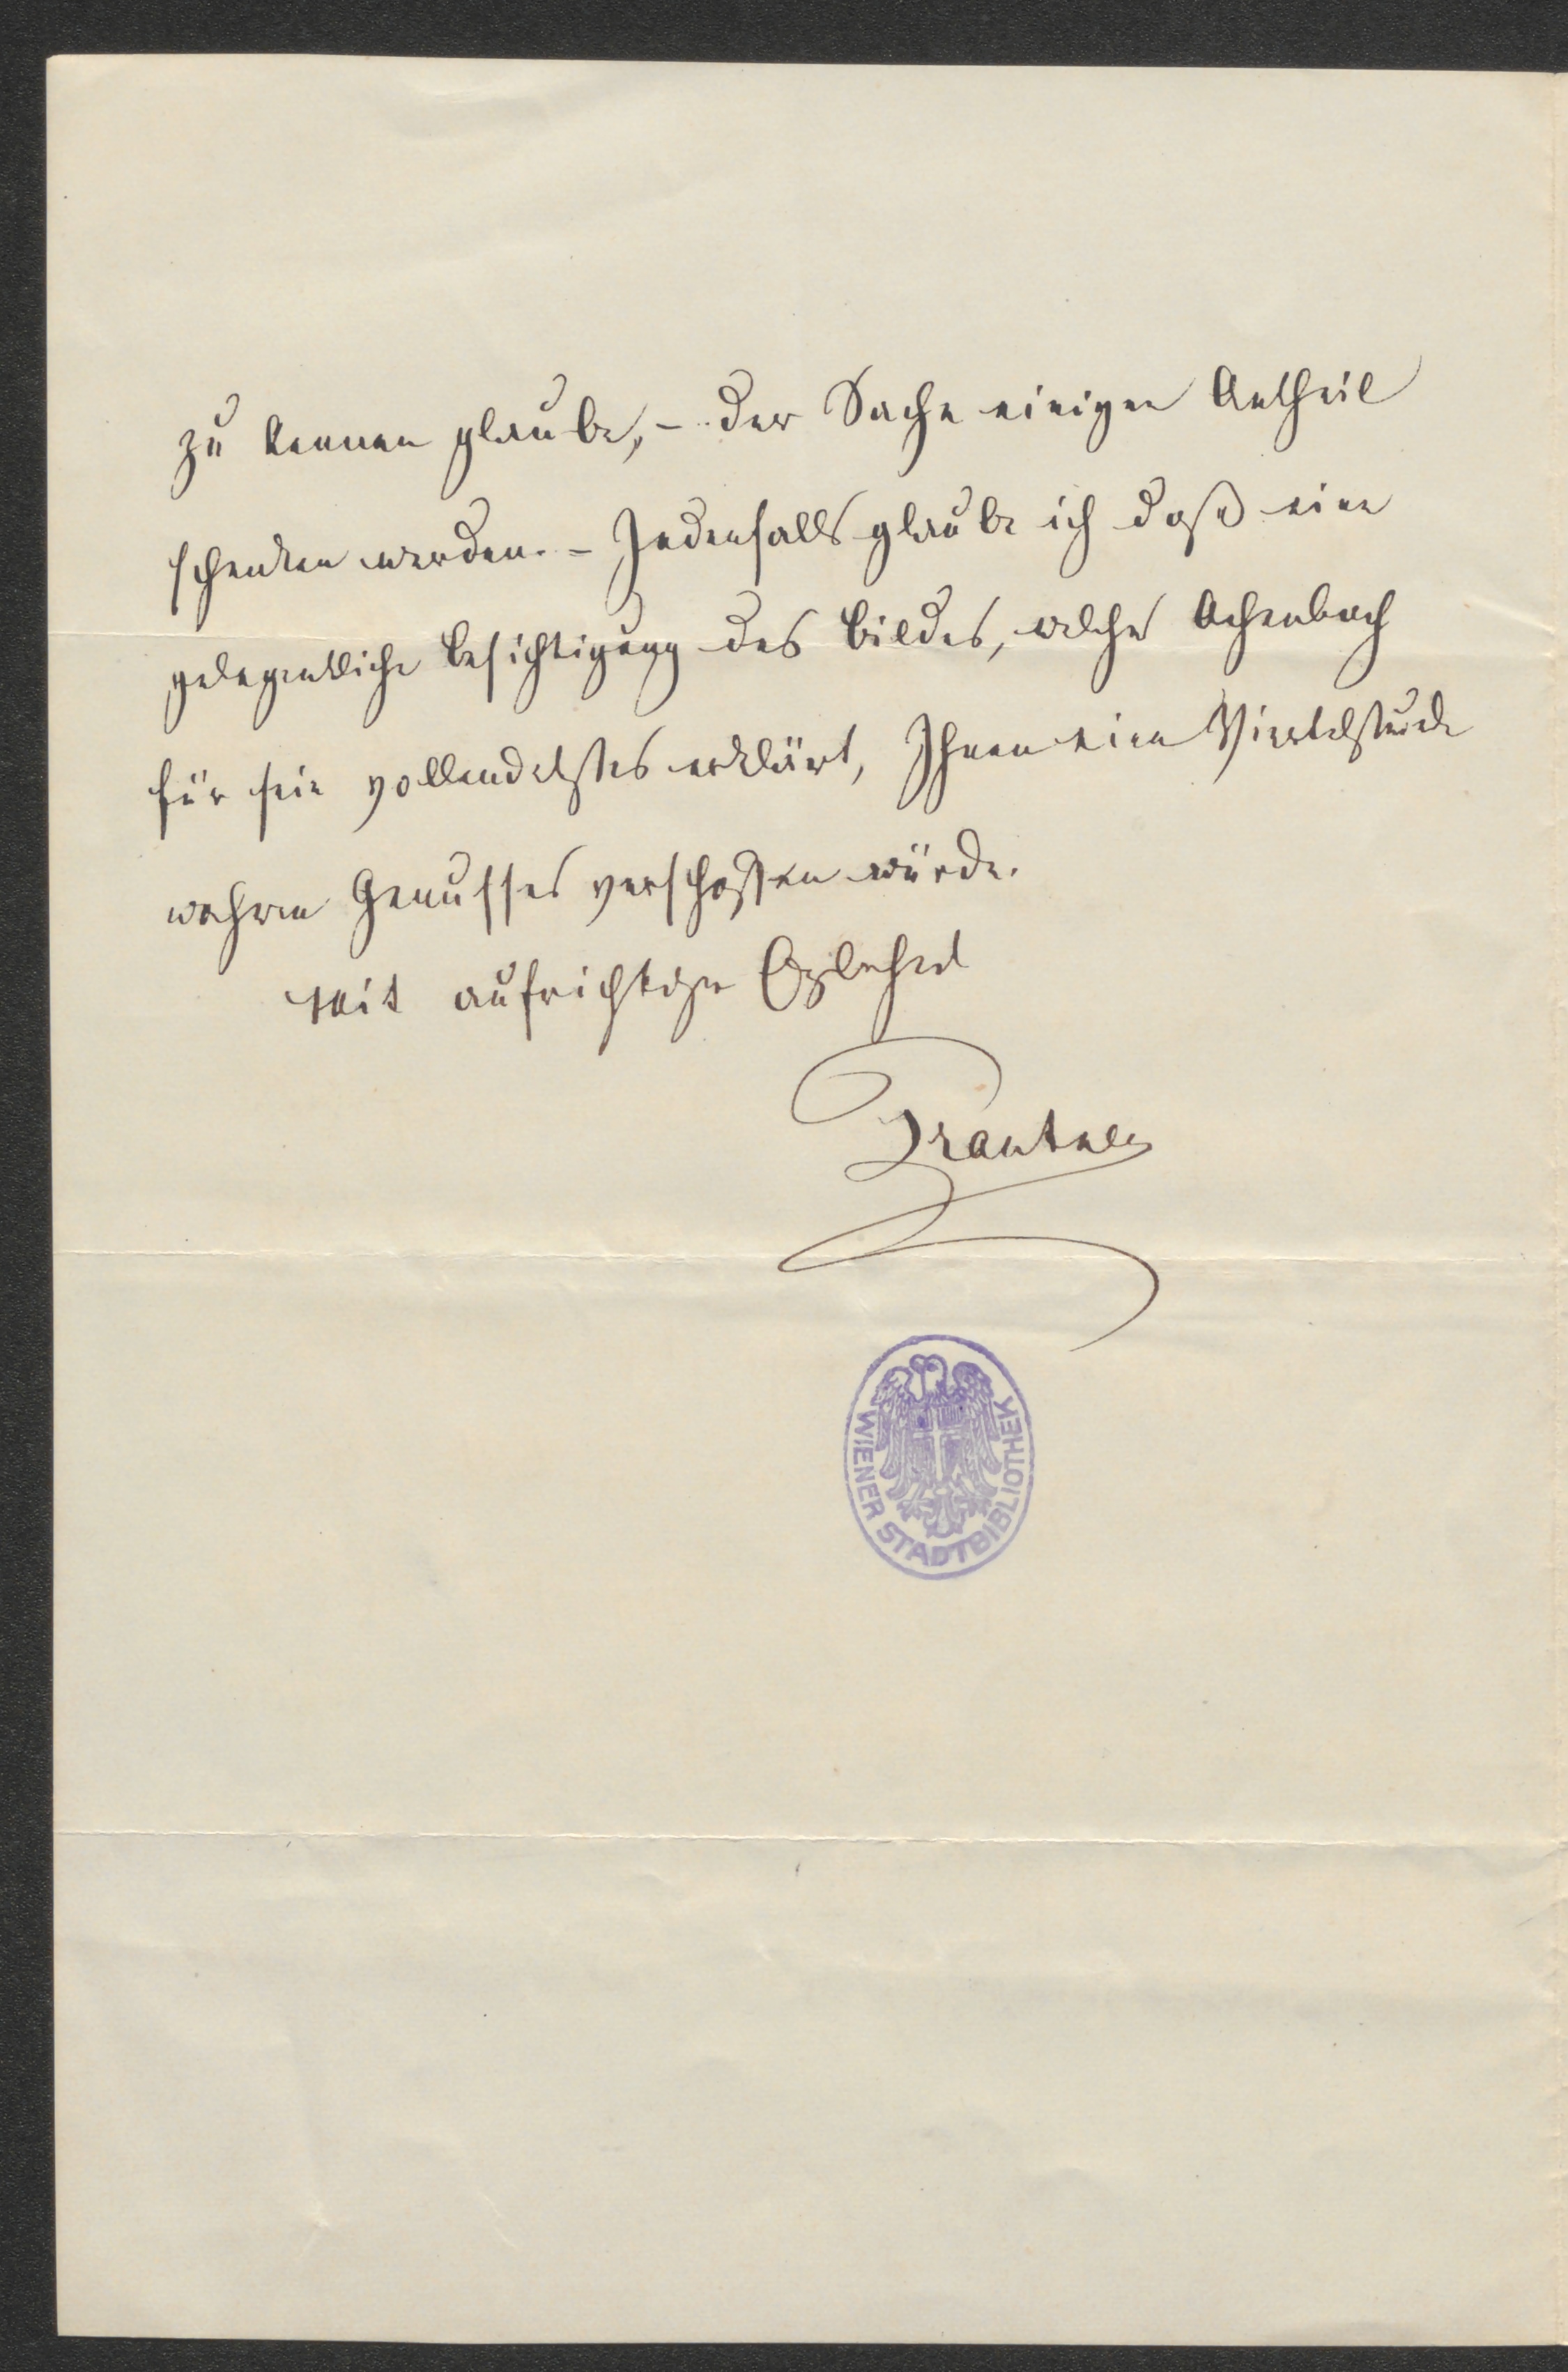 zu kennen glaube, – der Sache einigen Antheil
schenken werden. – Jedenfalls glaube ich daß eine
gelegentliche Besichtigung des Bildes, welches Achenbach
für sein vollendetstes erklärt, Ihnen eine Viertelstunde
wahren Genusses verschaffen würde.
Mit aufrichtiger
WIENER STADTBIBLIOTHEK